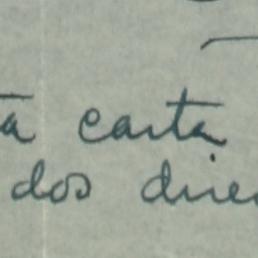 ta carta
dos direc